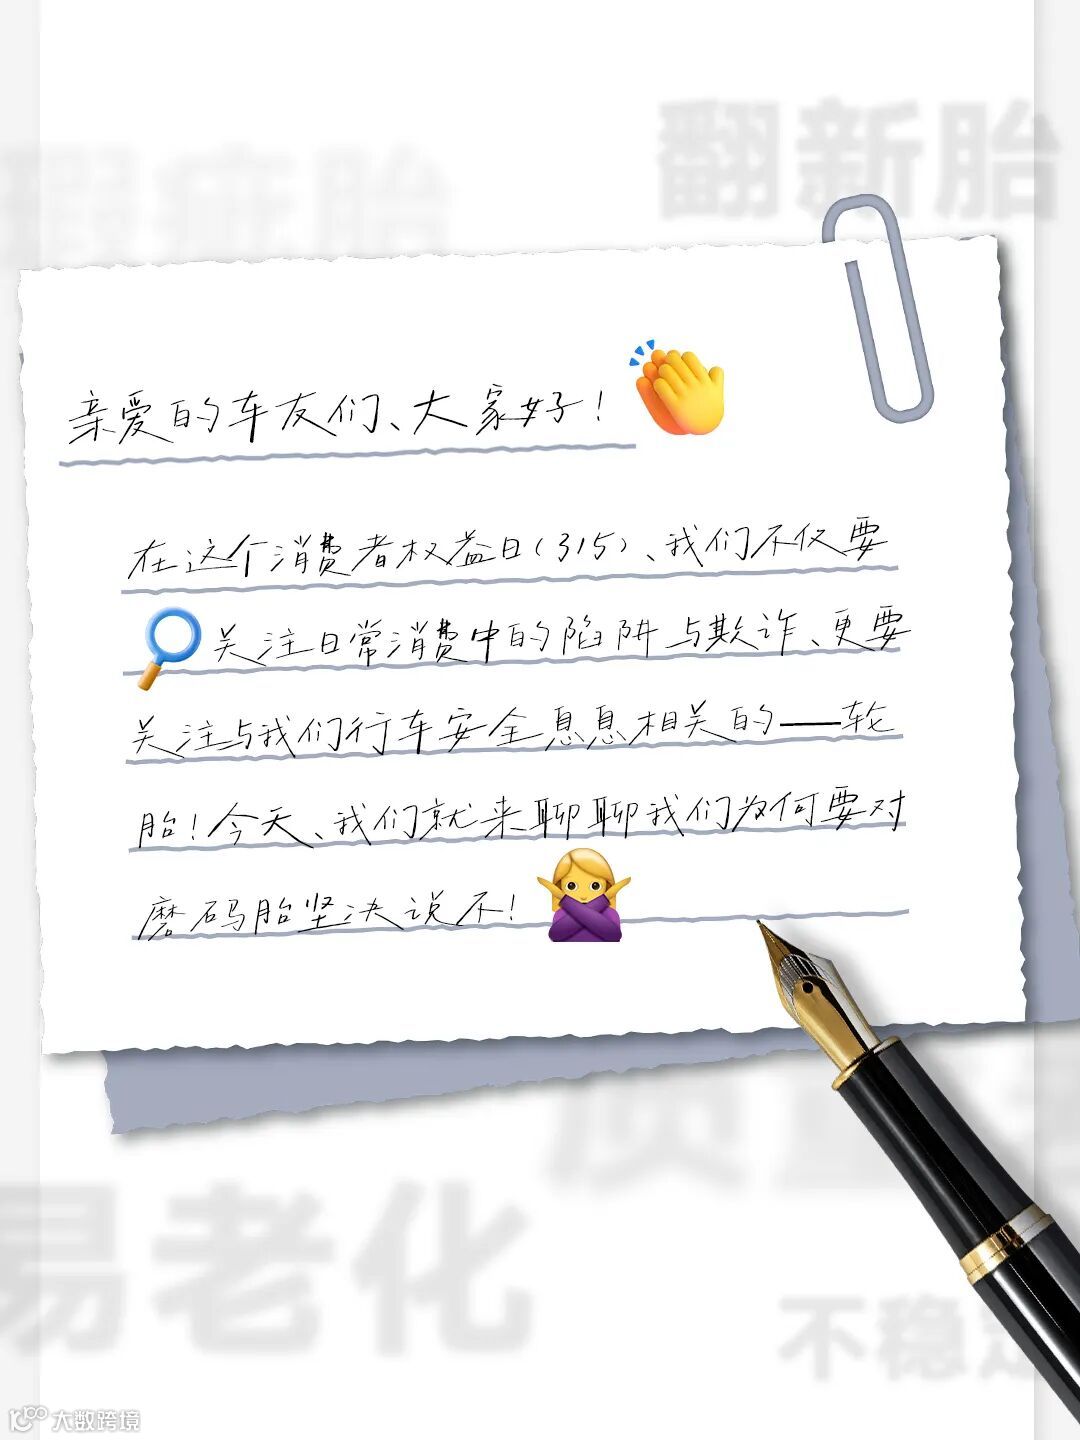 瑕疵胎
翻新胎
亲爱的车友们、大家好!
在这个消费者权益日(315)、我们不仅要
关注日常消费中的陷阱与欺诈、更要
关注与我们行车安全息息相关的——轮
胎!今天、我们就来聊聊我们为何要对
磨码胎坚决说不!
质量
易老化
不稳定
大数跨境